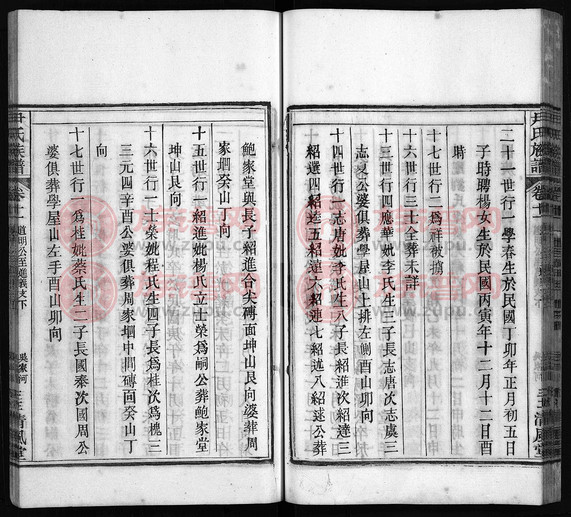 二十一世行一學春生於民國丁卯年正月初五日
子時聘楊女生於民國丙寅年十二月十二日酉
時
十七世行二為祥被擄
十六世行三十全葬未詳
十三世行四應華妣李氏生三子長志唐次志虞三
志夏公婆俱葬學屋山上排左側酉山卯向
十四世行一志唐妣李氏生八子長紹進次紹達三
紹選四紹逵五紹蓮六紹連七紹謎八紹述公葬
尹氏族譜
卷廿
清風堂
鮑家堂與長子紹進合尖磚面坤山艮向婆葬周
家堋癸山丁向
十五世行一紹進妣楊氏立士榮為嗣公葬鮑家堂
坤山艮向
十六世行一士榮妣程氏生四子長為桂次為槐二
三元四辛酉公婆俱葬周家堋中間磚面癸山丁
向
十七世行一為桂妣蔡氏生二子長國泰次國周公
婆俱葬學屋山左手酉山卯向
尹氏族譜
卷廿
道明公至進義支下
吳家河
清風堂